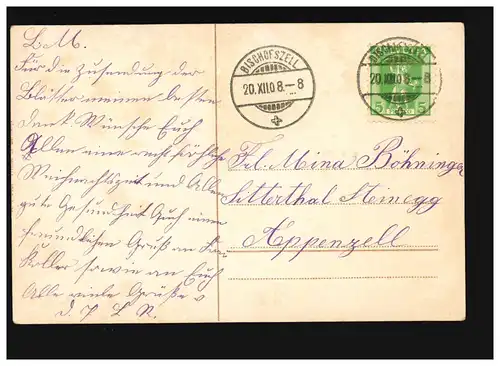 L. M.
Für die Zusendung der
Blätter meinen besten
Dank Wünsche Euch
Allen eine recht fröhliche
Weihnachtszeit und Allen
gute Gesundheit Auch einen
freundlichen Gruß an
Koller sowie an Euch
Alle viele Grüße
BISCHOFSZELL
20.XII.10.8.-8
20.XII.10.8.-8
5 5
Frl. Mina Böhninger
Sitterthal Steinegg
Appenzell